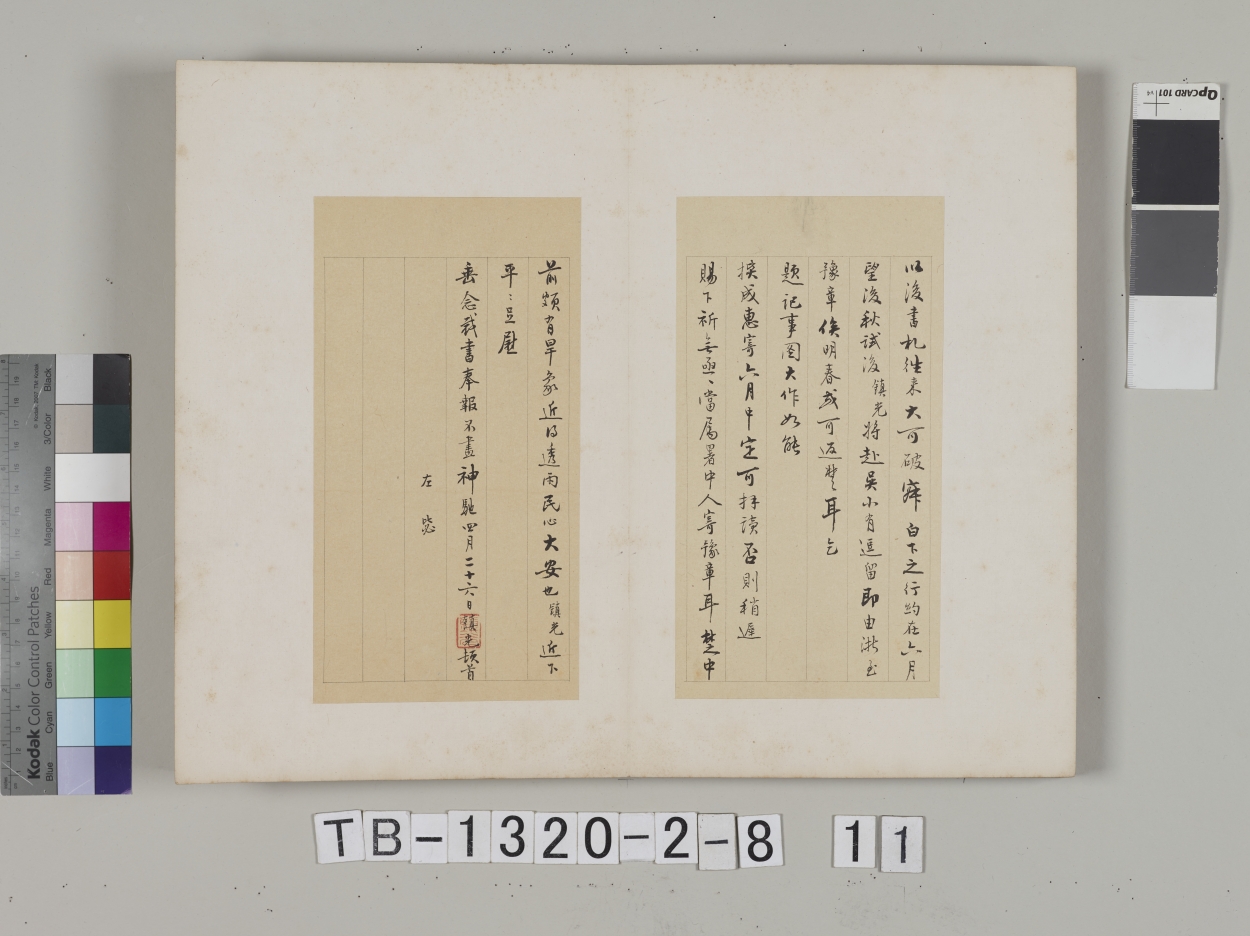 以後書札往來大可破寂白下之行約在六月
望後秋試後鎮光將赴吳小有逗留即由浙至
豫章俟明春或可返楚耳乞
題記事圖大作如能
揆成惠寄六月中定可拜讀否則稍遲
賜下祈無亟亟當屬署中人寄豫章耳楚中
前頗有旱象近得透雨民心大安也鎮光近下
平平足慰
垂念裁書奉報不盡神馳四月二十六日鎮光頓首
左
TB-1320-2-8 11
QPCARD 101 v4
Kodak Color Control Patches
© Kodak, 2007 TM: Kodak
Blue Cyan Green Yellow Red Magenta White 3/Color Black